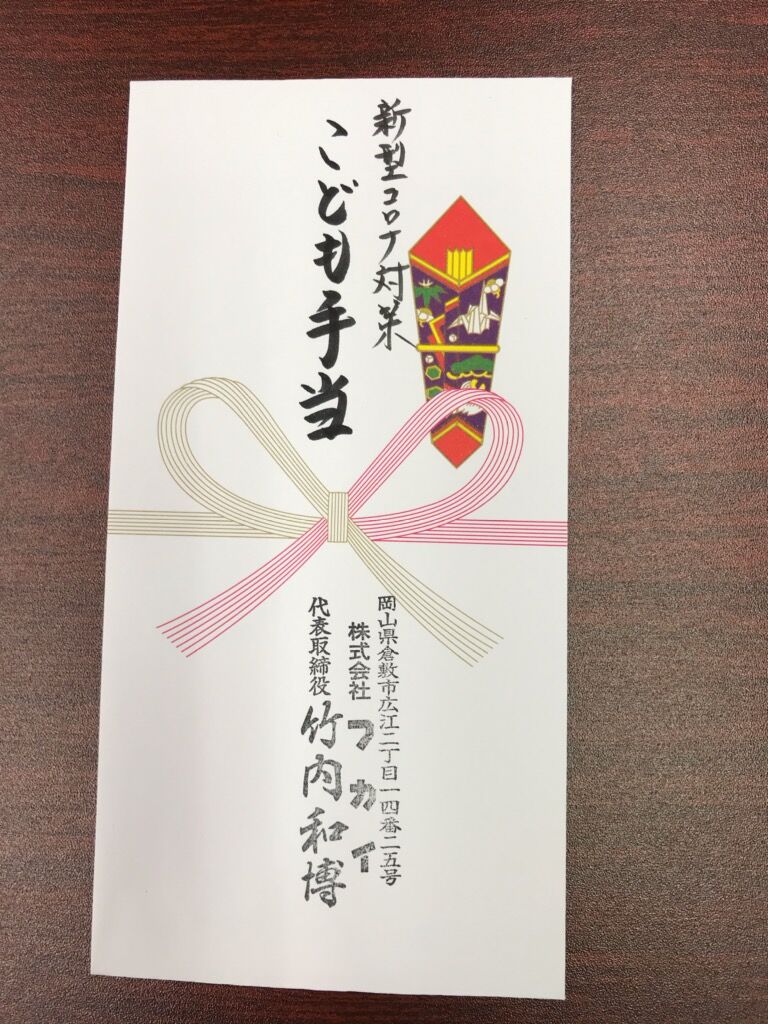 新型コロナ対策
こども手当
岡山県倉敷市広江二丁目一四番二五号
株式会社フカイ
代表取締役 竹内和博